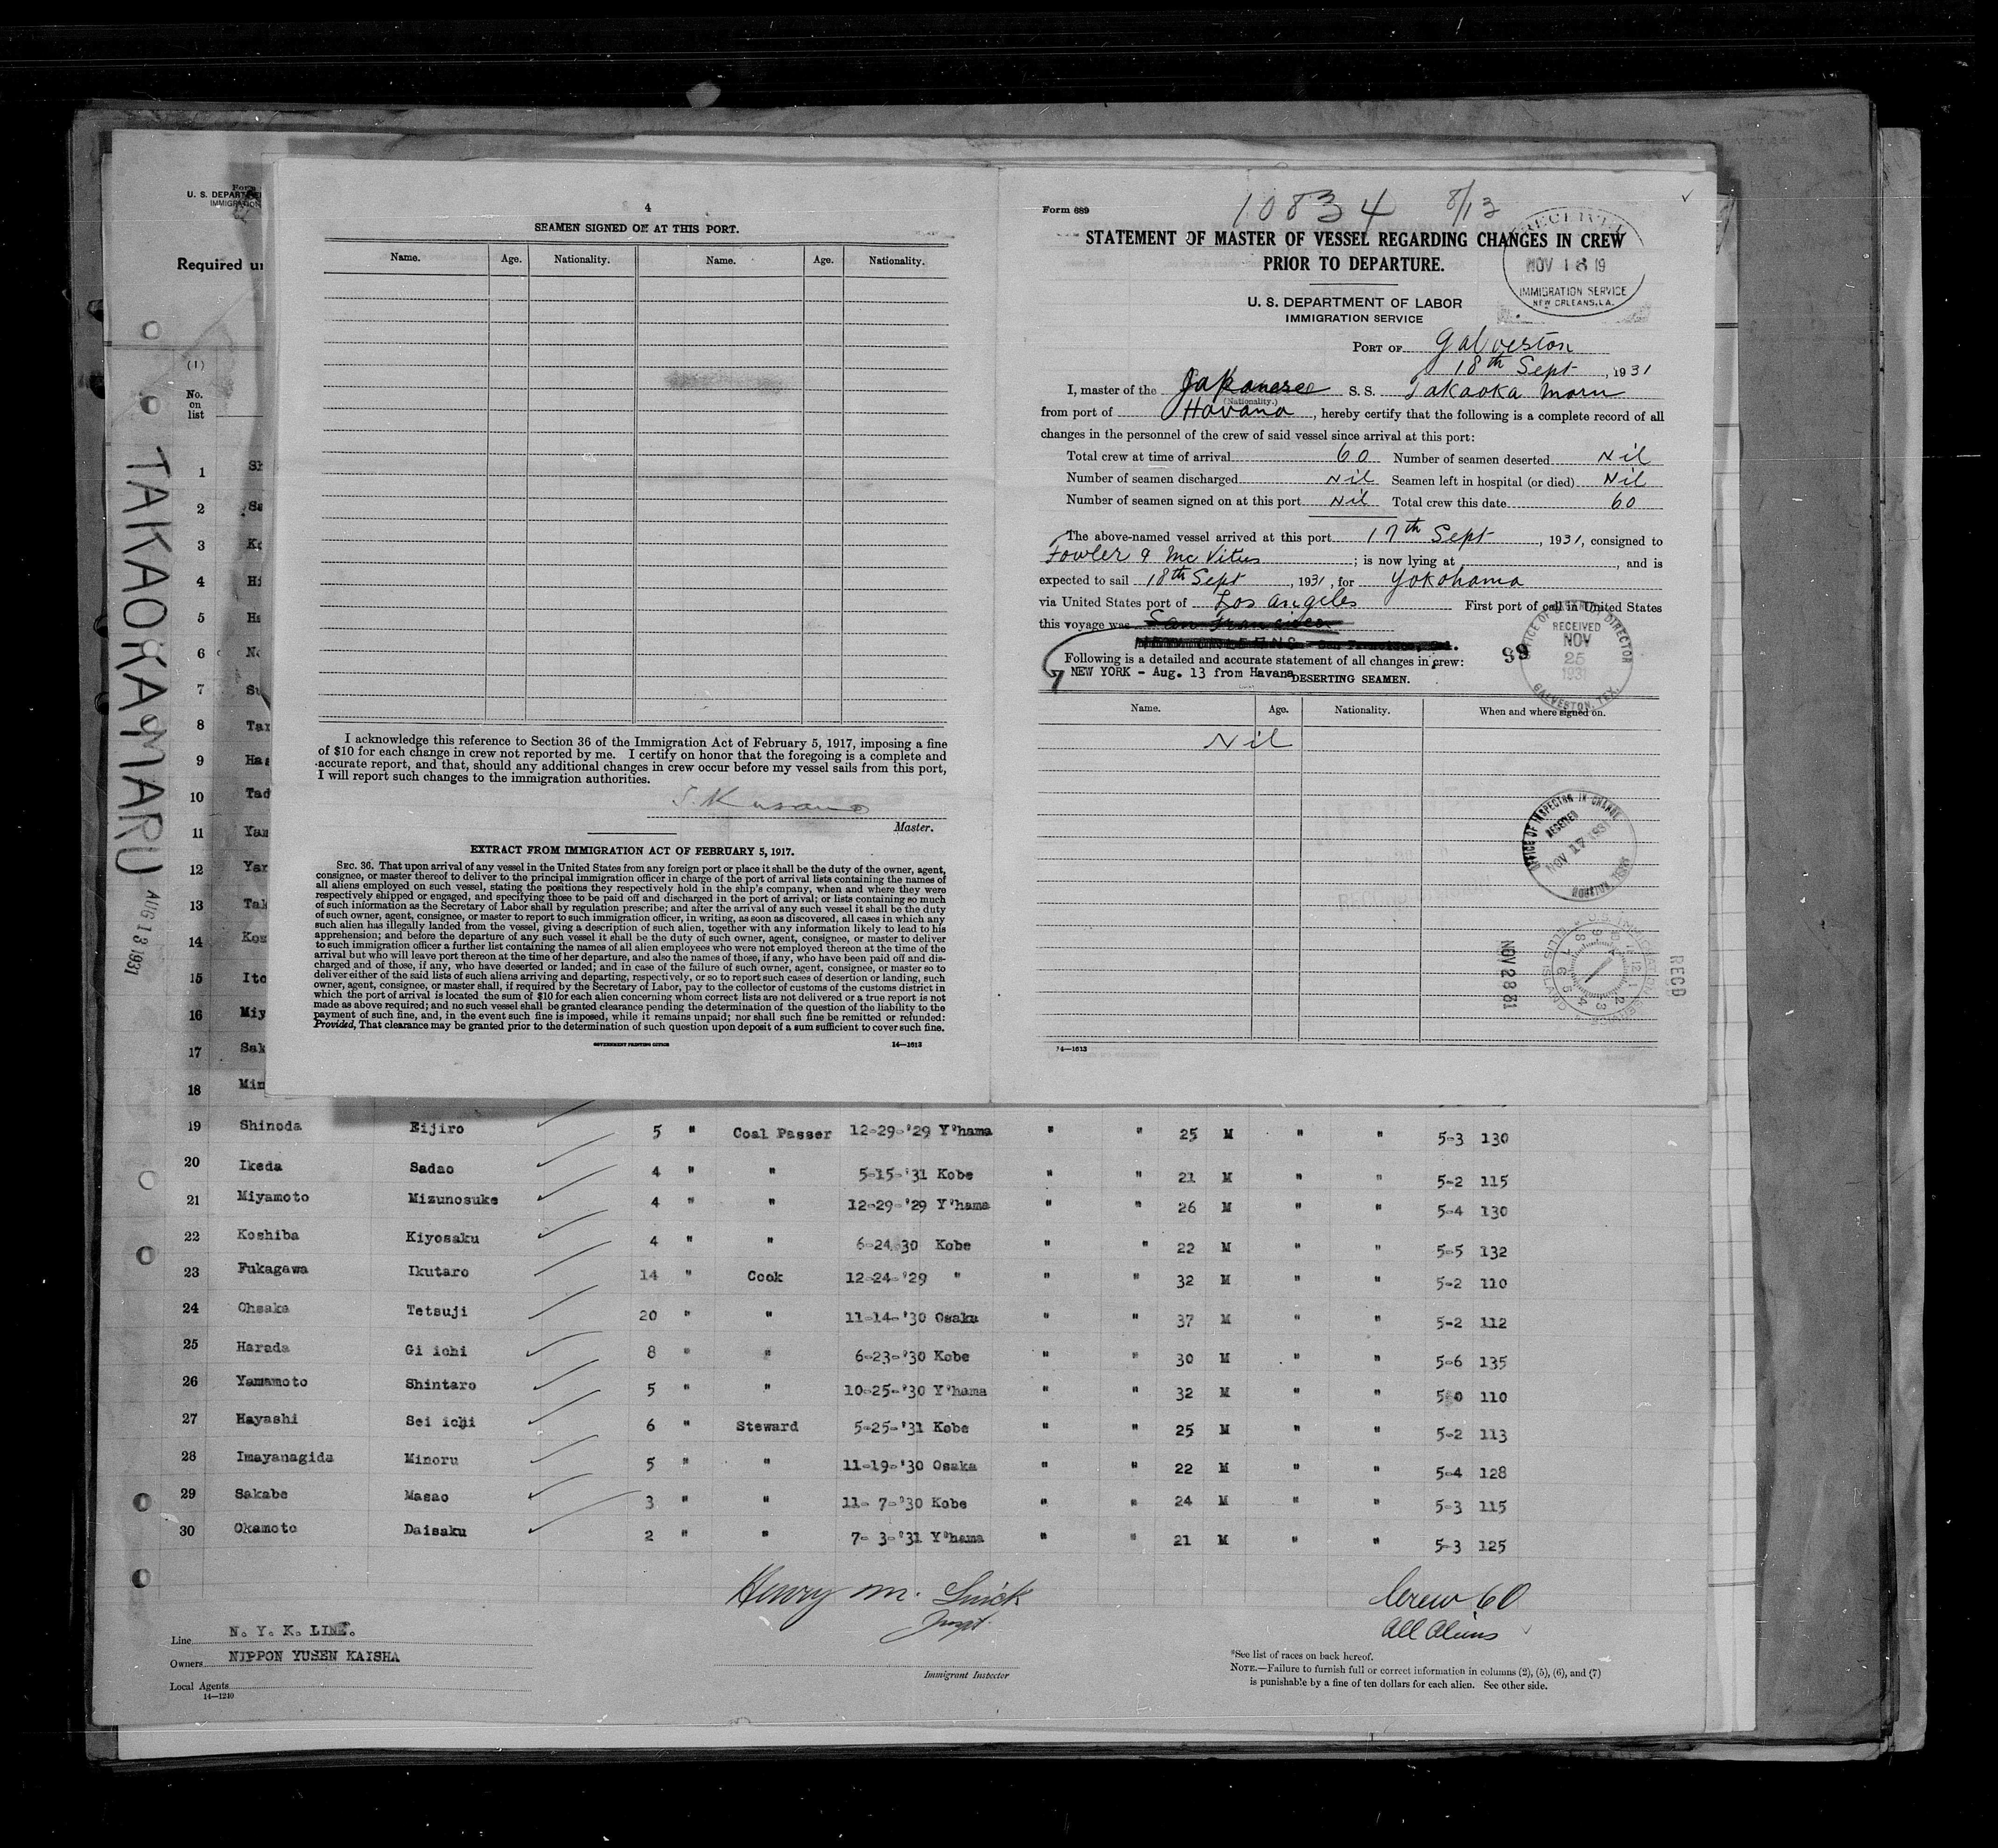 Form
U. S. DEPARTME
IMMIGRATION
Required u
(1)
No.
on
list
TAKAOKA MARU
AUG 13 1931
1 Sh
2 Sa
3 Ko
4 Hi
5 Ha
6 No
7 Su
8 Tan
9 Ha
10 Tad
11 Yam
12 Yam
13 Tak
14 Kos
15 Ito
16 Miy
17 Sak
18 Min
4
SEAMEN SIGNED ON AT THIS PORT.
Name. Age. Nationality. Name. Age. Nationality.
I acknowledge this reference to Section 36 of the Immigration Act of February 5, 1917, imposing a fine
of $10 for each change in crew not reported by me. I certify on honor that the foregoing is a complete and
accurate report, and that, should any additional changes in crew occur before my vessel sails from this port,
I will report such changes to the immigration authorities.
S. Kusano
Master.
EXTRACT FROM IMMIGRATION ACT OF FEBRUARY 5, 1917.
SEC. 36. That upon arrival of any vessel in the United States from any foreign port or place it shall be the duty of the owner, agent,
consignee, or master thereof to deliver to the principal immigration officer in charge of the port of arrival lists containing the names of
all aliens employed on such vessel, stating the positions they respectively hold in the ship's company, when and where they were
respectively shipped or engaged, and specifying those to be paid off and discharged in the port of arrival; or lists containing so much
of such information as the Secretary of Labor shall by regulation prescribe; and after the arrival of any such vessel it shall be the duty
of such owner, agent, consignee, or master to report to such immigration officer, in writing, as soon as discovered, all cases in which any
such alien has illegally landed from the vessel, giving a description of such alien, together with any information likely to lead to his
apprehension; and before the departure of any such vessel it shall be the duty of such owner, agent, consignee, or master to deliver
to such immigration officer a further list containing the names of all alien employees who were not employed thereon at the time of the
arrival but who will leave port thereon at the time of her departure, and also the names of those, if any, who have been paid off and dis-
charged and of those, if any, who have deserted or landed; and in case of the failure of such owner, agent, consignee, or master so to
deliver either of the said lists of such aliens arriving and departing, respectively, or so to report such cases of desertion or landing, such
owner, agent, consignee, or master shall, if required by the Secretary of Labor, pay to the collector of customs of the customs district in
which the port of arrival is located the sum of $10 for each alien concerning whom correct lists are not delivered or a true report is not
made as above required; and no such vessel shall be granted clearance pending the determination of the question of the liability to the
payment of such fine, and, in the event such fine is imposed, while it remains unpaid; nor shall such fine be remitted or refunded:
Provided, That clearance may be granted prior to the determination of such question upon deposit of a sum sufficient to cover such fine.
GOVERNMENT PRINTING OFFICE 14—1613
Form 689
10834 8/13
STATEMENT OF MASTER OF VESSEL REGARDING CHANGES IN CREW
PRIOR TO DEPARTURE.
RECEIVED
NOV 16 19
IMMIGRATION SERVICE
NEW ORLEANS, LA.
U. S. DEPARTMENT OF LABOR
IMMIGRATION SERVICE
PORT OF Galveston
18th Sept, 1931
I, master of the Japanese S. S. Takaoka Maru
(Nationality.)
from port of Havana, hereby certify that the following is a complete record of all
changes in the personnel of the crew of said vessel since arrival at this port:
Total crew at time of arrival 60 Number of seamen deserted Nil
Number of seamen discharged Nil Seamen left in hospital (or died) Nil
Number of seamen signed on at this port Nil Total crew this date 60
The above-named vessel arrived at this port 17th Sept, 1931, consigned to
Fowler & McVitus; is now lying at , and is
expected to sail 18th Sept, 1931, for Yokohama
via United States port of Los Angeles First port of call in United States
this voyage was San Francisco
San Francisco, Cal.
Following is a detailed and accurate statement of all changes in crew:
NEW YORK - Aug. 13 from Havana
DESERTING SEAMEN.
99
OFFICE OF DISTRICT DIRECTOR
RECEIVED
NOV
25
1931
GALVESTON, TEX.
Name. Age. Nationality. When and where signed on.
Nil
OFFICE OF INSPECTOR IN CHARGE
RECEIVED
NOV 17 1931
NOV 28 31
ELLIS ISLAND
RECD
14—1613
19 Shinoda Eijiro 5 " Coal Passer 12-29-'29 Y'hama " " 25 M " " 5-3 130
20 Ikeda Sadao 4 " " 5-15-'31 Kobe " " 21 M " " 5-2 115
21 Miyamoto Mizunosuke 4 " " 12-29-'29 Y'hama " " 26 M " " 5-4 130
22 Koshiba Kiyosaku 4 " " 6-24 30 Kobe " " 22 M " " 5-5 132
23 Fukagawa Ikutaro 14 " Cook 12-24-'29 " " " 32 M " " 5-2 110
24 Ohsaka Tetsuji 20 " " 11-14-'30 Osaka " " 37 M " " 5-2 112
25 Harada Gi ichi 8 " " 6-23-'30 Kobe " " 30 M " " 5-6 135
26 Yamamoto Shintaro 5 " " 10-25-'30 Y'hama " " 32 M " " 5-0 110
27 Hayashi Sei ichi 6 " Steward 5-25-'31 Kobe " " 25 M " " 5-2 113
28 Imayanagida Minoru 5 " " 11-19-'30 Osaka " " 22 M " " 5-4 128
29 Sakabe Masao 3 " " 11- 7-'30 Kobe " " 24 M " " 5-3 115
30 Okamoto Daisaku 2 " " 7- 3-'31 Y'hama " " 21 M " " 5-3 125
Henry M.
Inspt.
Immigrant Inspector
Crew 60
All Aliens
Line N. Y. K. LINE.
Owners NIPPON YUSEN KAISHA
Local Agents
14—1240
*See list of races on back hereof.
NOTE.—Failure to furnish full or correct information in columns (2), (5), (6), and (7)
is punishable by a fine of ten dollars for each alien. See other side.